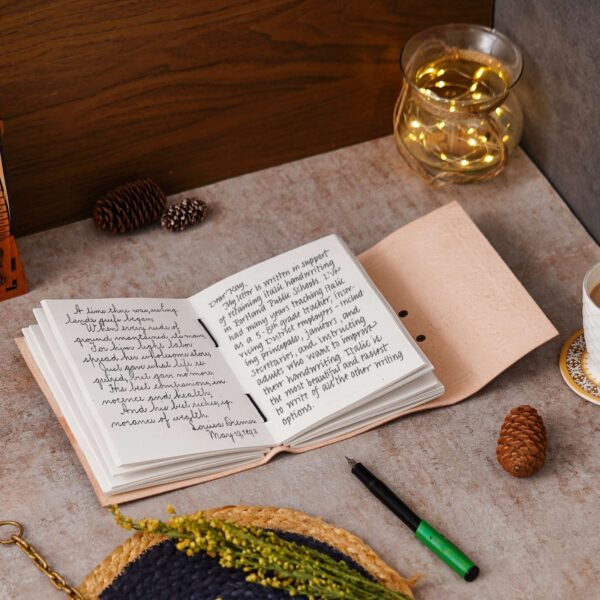 A time there was, ere
lands griefs began,
When every rude of
ground maintained its man;
For him light labor
spread her wholesome store,
Just gave what life re-
quired, but gave no more:
His best companions, in-
nocence and health;
And his best riches, ig-
norance of wealth.
May
Dear Kay,
My letter is written in support
of retaining italic handwriting
in Portland Public Schools. I've
had many years teaching italic
as a 5-8th grade teacher, instr-
ucting District employees, includ
ing principals, janitors, and
secretaries, and instructing
adults who want to improve
their handwriting. Italic is
the most beautiful and easiest
to write of all the other writing
options.